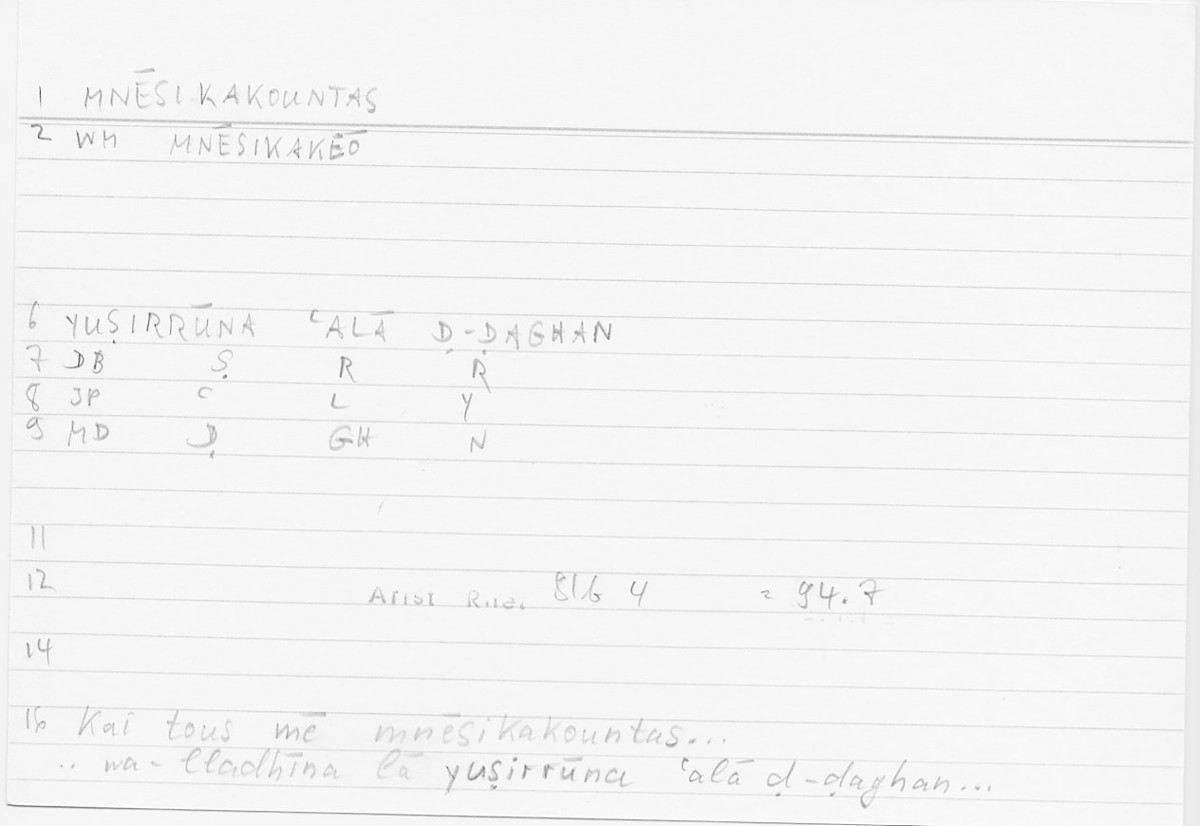 1 MNĒSIKAKOUNTAS
2 WH MNĒSIKAKĒŌ
6 YUṢIRRŪNA ʿALĀ Ḍ-ḌAGHAN
7 DB Ṣ R R
8 JP ʿ L Y
9 MD Ḍ GH N
11
12 Arist Rhet. 81b 4 = 94.7
14
16 Kai tous mē mnēsikakountas...
.. wa-lladhīna lā yuṣirrūna ʿalā ḍ-ḍaghan...